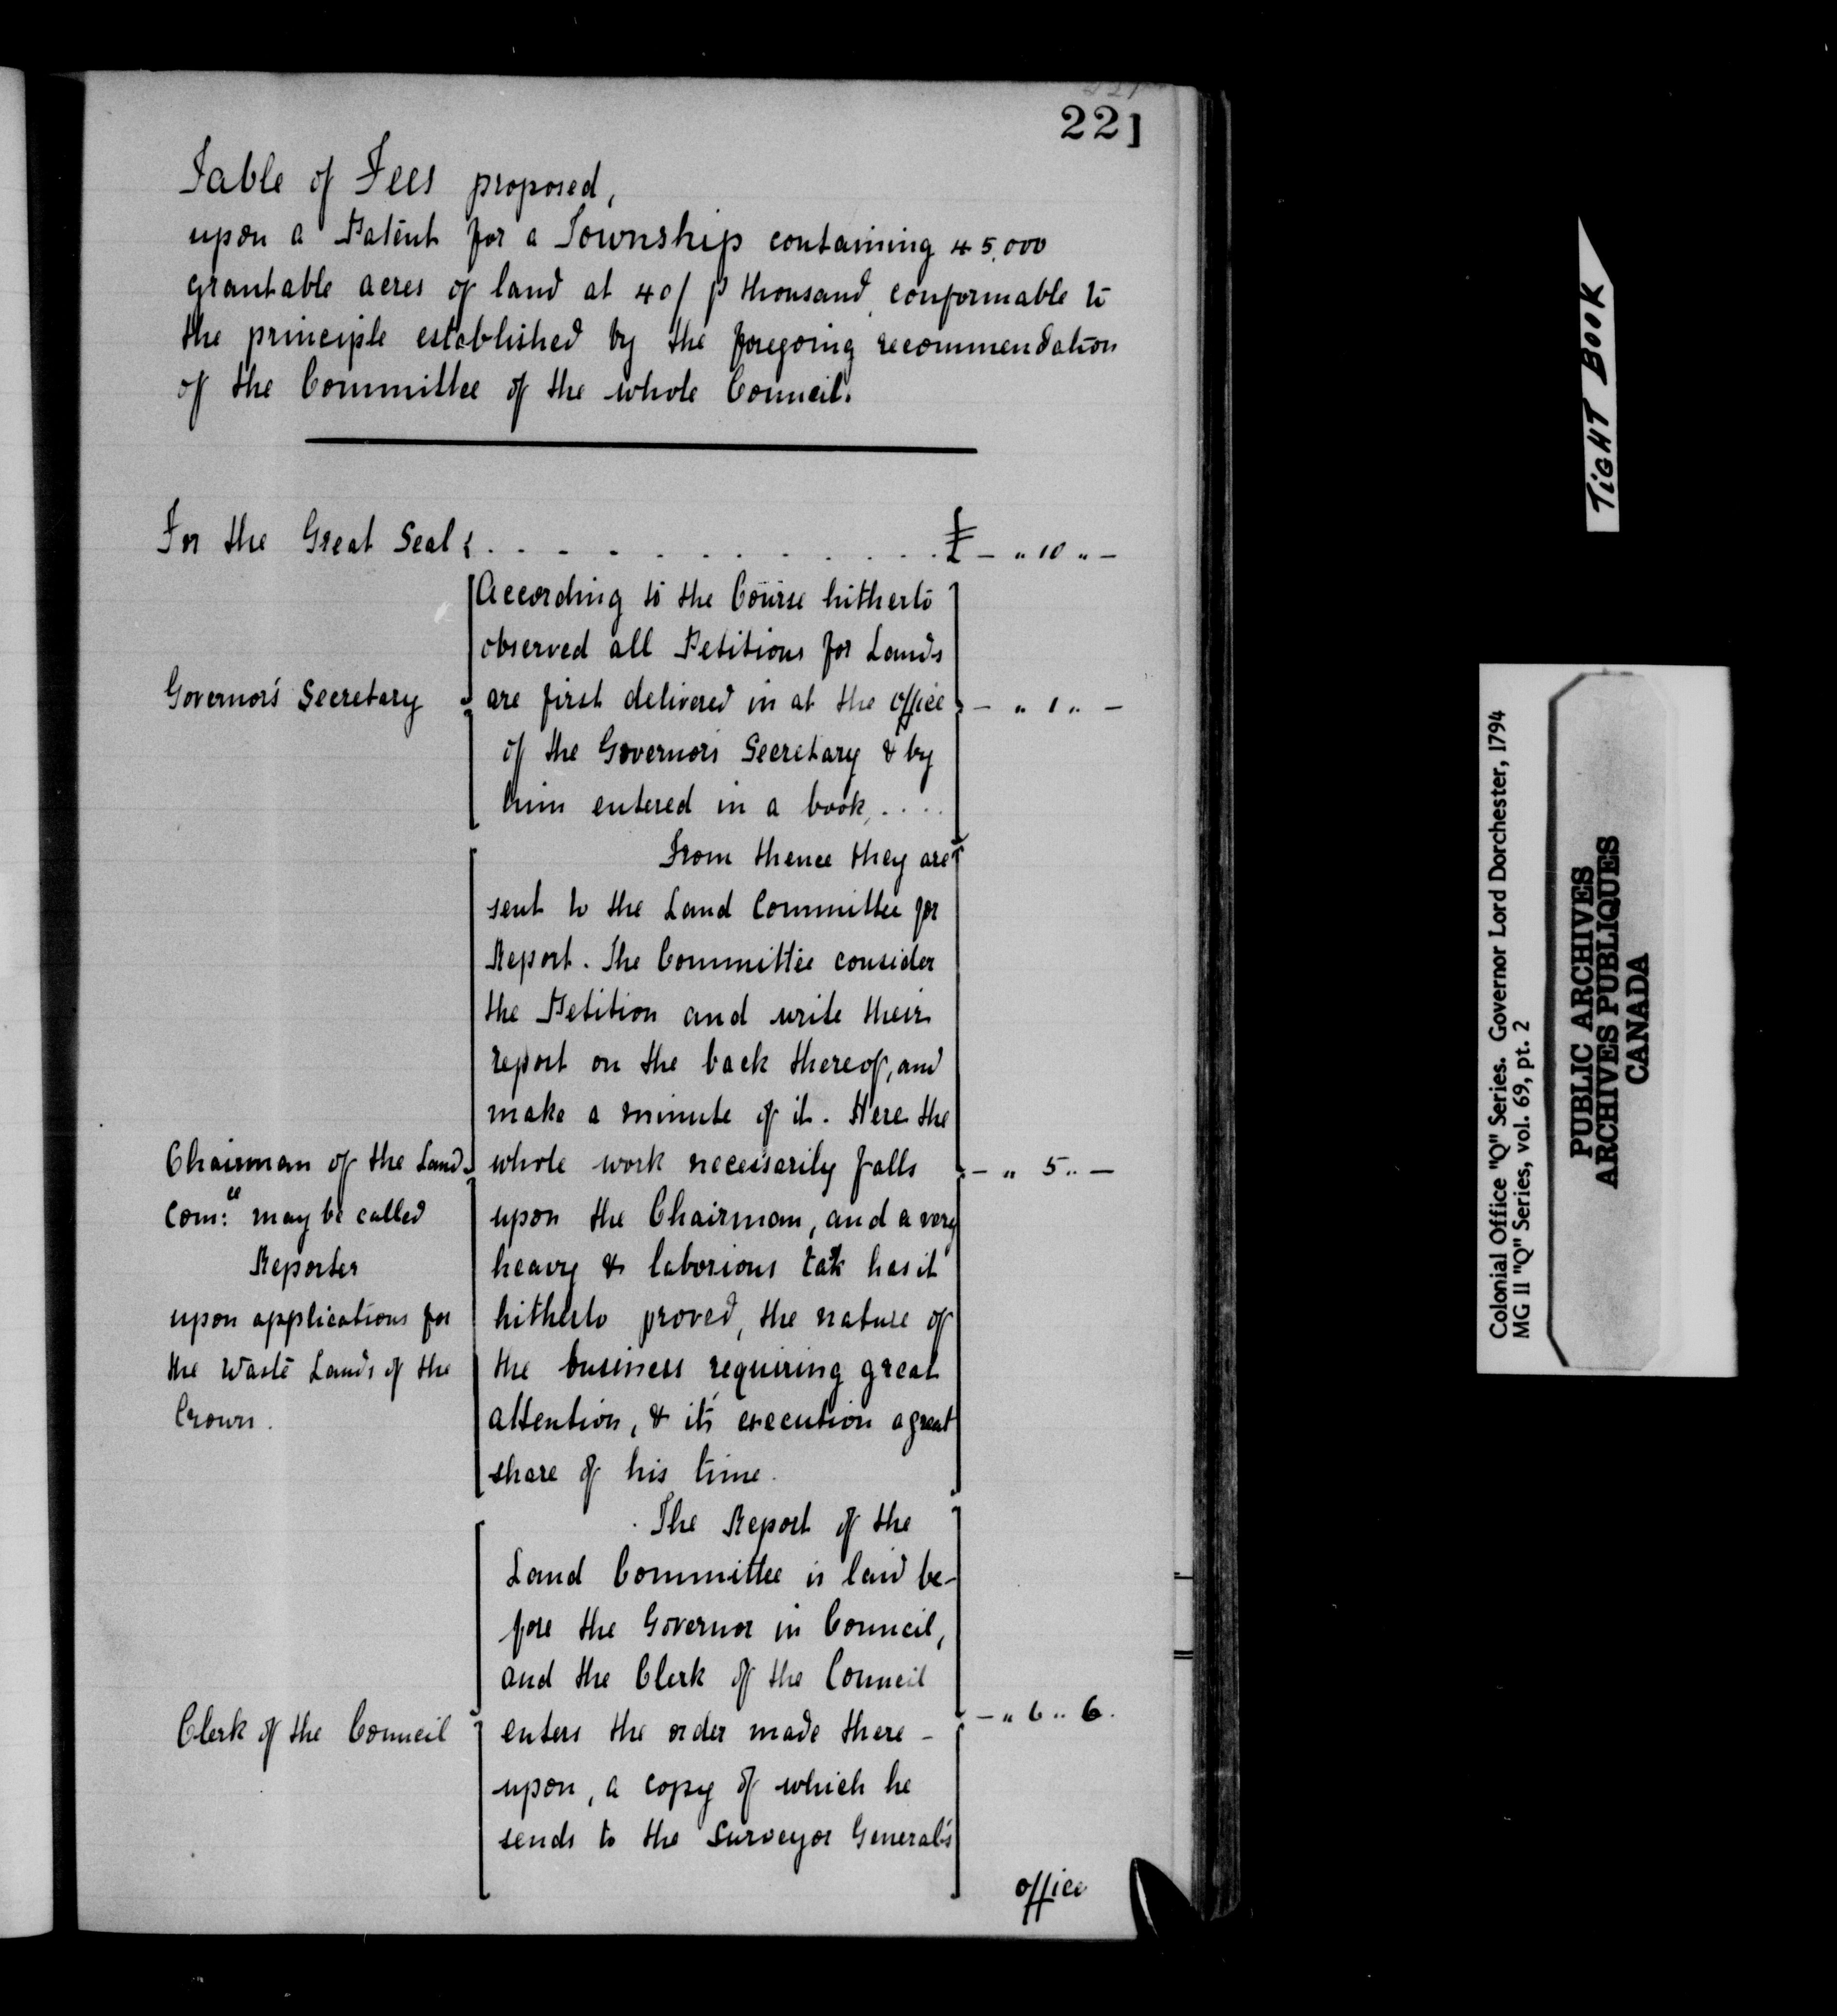 221
Table of Fees proposed,
upon a Patent for a Township containing 45,000
grantable acres of land at 40/ p thousand conformable to
the principle established by the foregoing recommendation
of the Committee of the whole Council.
For the Great Seal . . . . . . . . . . £ – " 10 " –
According to the Course hitherto
observed all Petitions for Lands
Governor's Secretary are first delivered in at the office – " 1 " –
of the Governor's Secretary & by
him entered in a book, . . . .
From thence they are
sent to the Land Committee for
Report. The Committee consider
the Petition and write their
report on the back thereof, and
make a minute of it. Here the
Chairman of the Land whole work necessarily falls – " 5 " –
Com:ee may be called upon the Chairman, and a very
Reporter heavy & laborious task has it
upon applications for hitherto proved, the nature of
the Waste Lands of the the business requiring great
Crown. attention, & it's execution a great
share of his time.
The Report of the
Land Committee is laid be-
fore the Governor in Council,
and the Clerk of the Council
Clerk of the Council enters the order made there- – " 6 " 6.
upon, a copy of which he
sends to the Surveyor General's
office
TIGHT BOOK
Colonial Office "Q" Series. Governor Lord Dorchester, 1794
MG 11 "Q" Series, vol. 69, pt. 2
PUBLIC ARCHIVES
ARCHIVES PUBLIQUES
CANADA